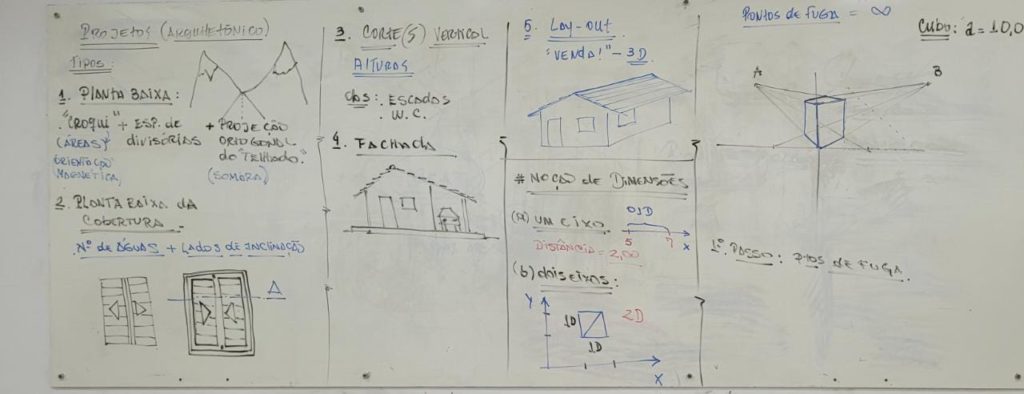 PROJETOS (ARQUITETÔNICO)
TIPOS:
1. PLANTA BAIXA:
"CROQUI" + ESP. de
(ÁREAS) divisórias
ORIENTAÇÃO
MAGNÉTICA
+ PROJEÇÃO
ORTOGONAL
do "TELHADO".
(SOMBRA)
2. PLANTA BAIXA DA
COBERTURA.
Nº de ÁGUAS + LADOS DE INCLINAÇÃO
A
3. CORTE(S) VERTICAL
ALTURAS
Obs: ESCADAS
W.C.
4. FACHADA
5. LAY-OUT
"VENDA!" - 3D
# NOÇÃO de DIMENSÕES
(a) UM EIXO.
01D
5 7 X
DISTÂNCIA = 2,00
(b) dois eixos:
Y
1D
2D
1D
X
PONTOS DE FUGA = ∞
CUBO: a = 10,0
A
B
1º. PASSO: PTOS DE FUGA.